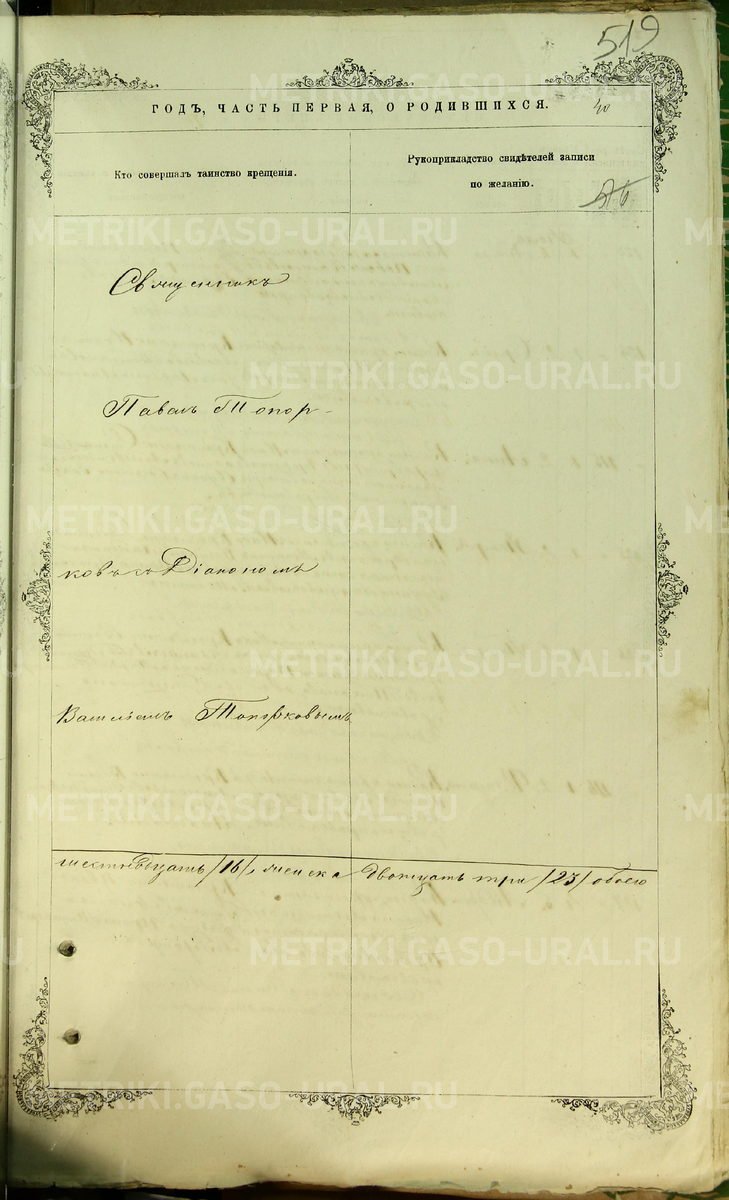 519
ГОДЪ, ЧАСТЬ ПЕРВАЯ, О РОДИВШИХСЯ.
40
Кто совершалъ таинство крещенія.
Рукоприкладство свидѣтелей записи
по желанію.
Священникъ
Павелъ Топор-
ковъ съ Діакономъ
Василіемъ Топорковымъ
шестнадцать /16/, женска двадцать три /23/ обоего
METRIKI.GASO-URAL.RU